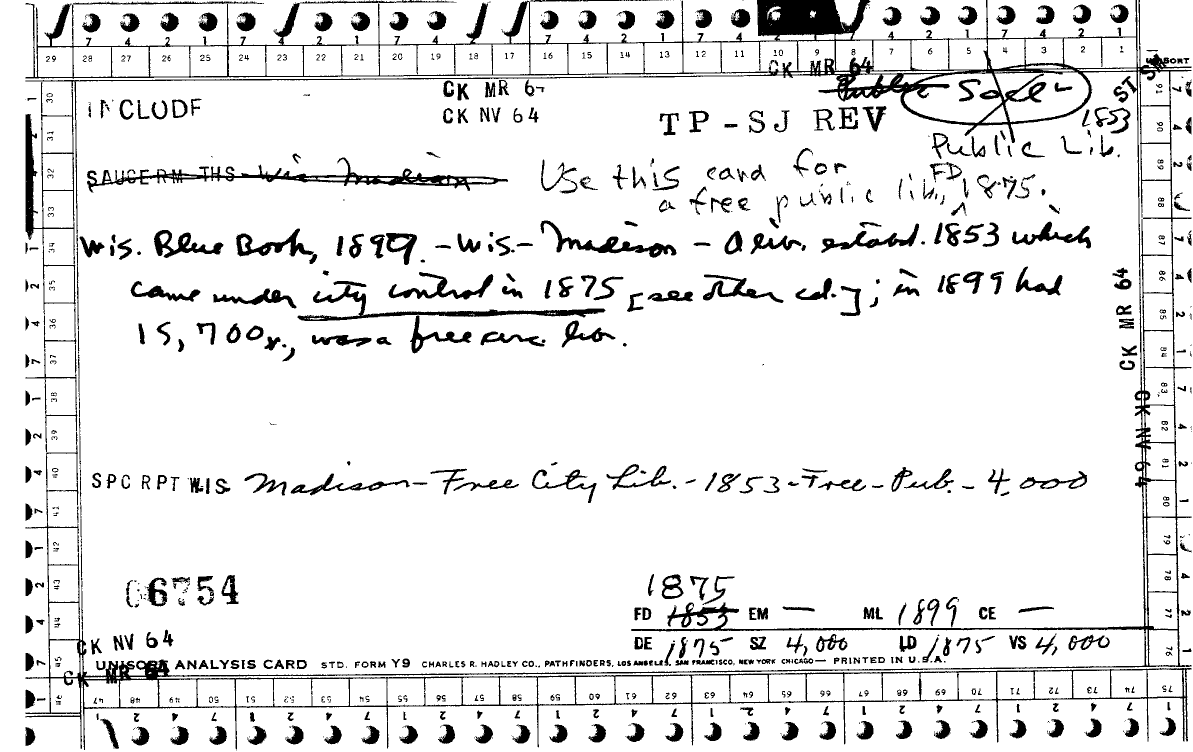 7 4 2 1 7 4 2 1 7 4 2 1 7 4 2 1 7 4 2 1 7 4 2 1
29 28 27 26 25 24 23 22 21 20 19 18 17 16 15 14 13 12 11 10 9 8 7 6 5 4 3 2 1
CK MR 64
INCLUDE
CK MR 6
CK NV 64
Public
Socl
ST
1853
TP-SJ REV
Public Lib.
SAUCERM THS Wis Madison
Use this card for
FD
a free public lib., 1875.
Wis. Blue Book, 1899. - Wis. - Madison - A lib. establ. 1853 which
came under city control in 1875 [see other cd.]; in 1899 had
15,700v., was a free circ. lib.
CK MR 64
CK NV 64
SPC RPT WIS Madison - Free City Lib. - 1853 - Free - Pub. - 4,000
06754
1875
FD 1853 EM — ML 1899 CE —
DE 1875 SZ 4,000 LD 1875 VS 4,000
CK NV 64
CK MR 64
UNISORT ANALYSIS CARD STD. FORM Y9 CHARLES R. HADLEY CO., PATHFINDERS, LOS ANGELES, SAN FRANCISCO, NEW YORK CHICAGO — PRINTED IN U.S.A.
47 48 49 50 51 52 53 54 55 56 57 58 59 60 61 62 63 64 65 66 67 68 69 70 71 72 73 74 75